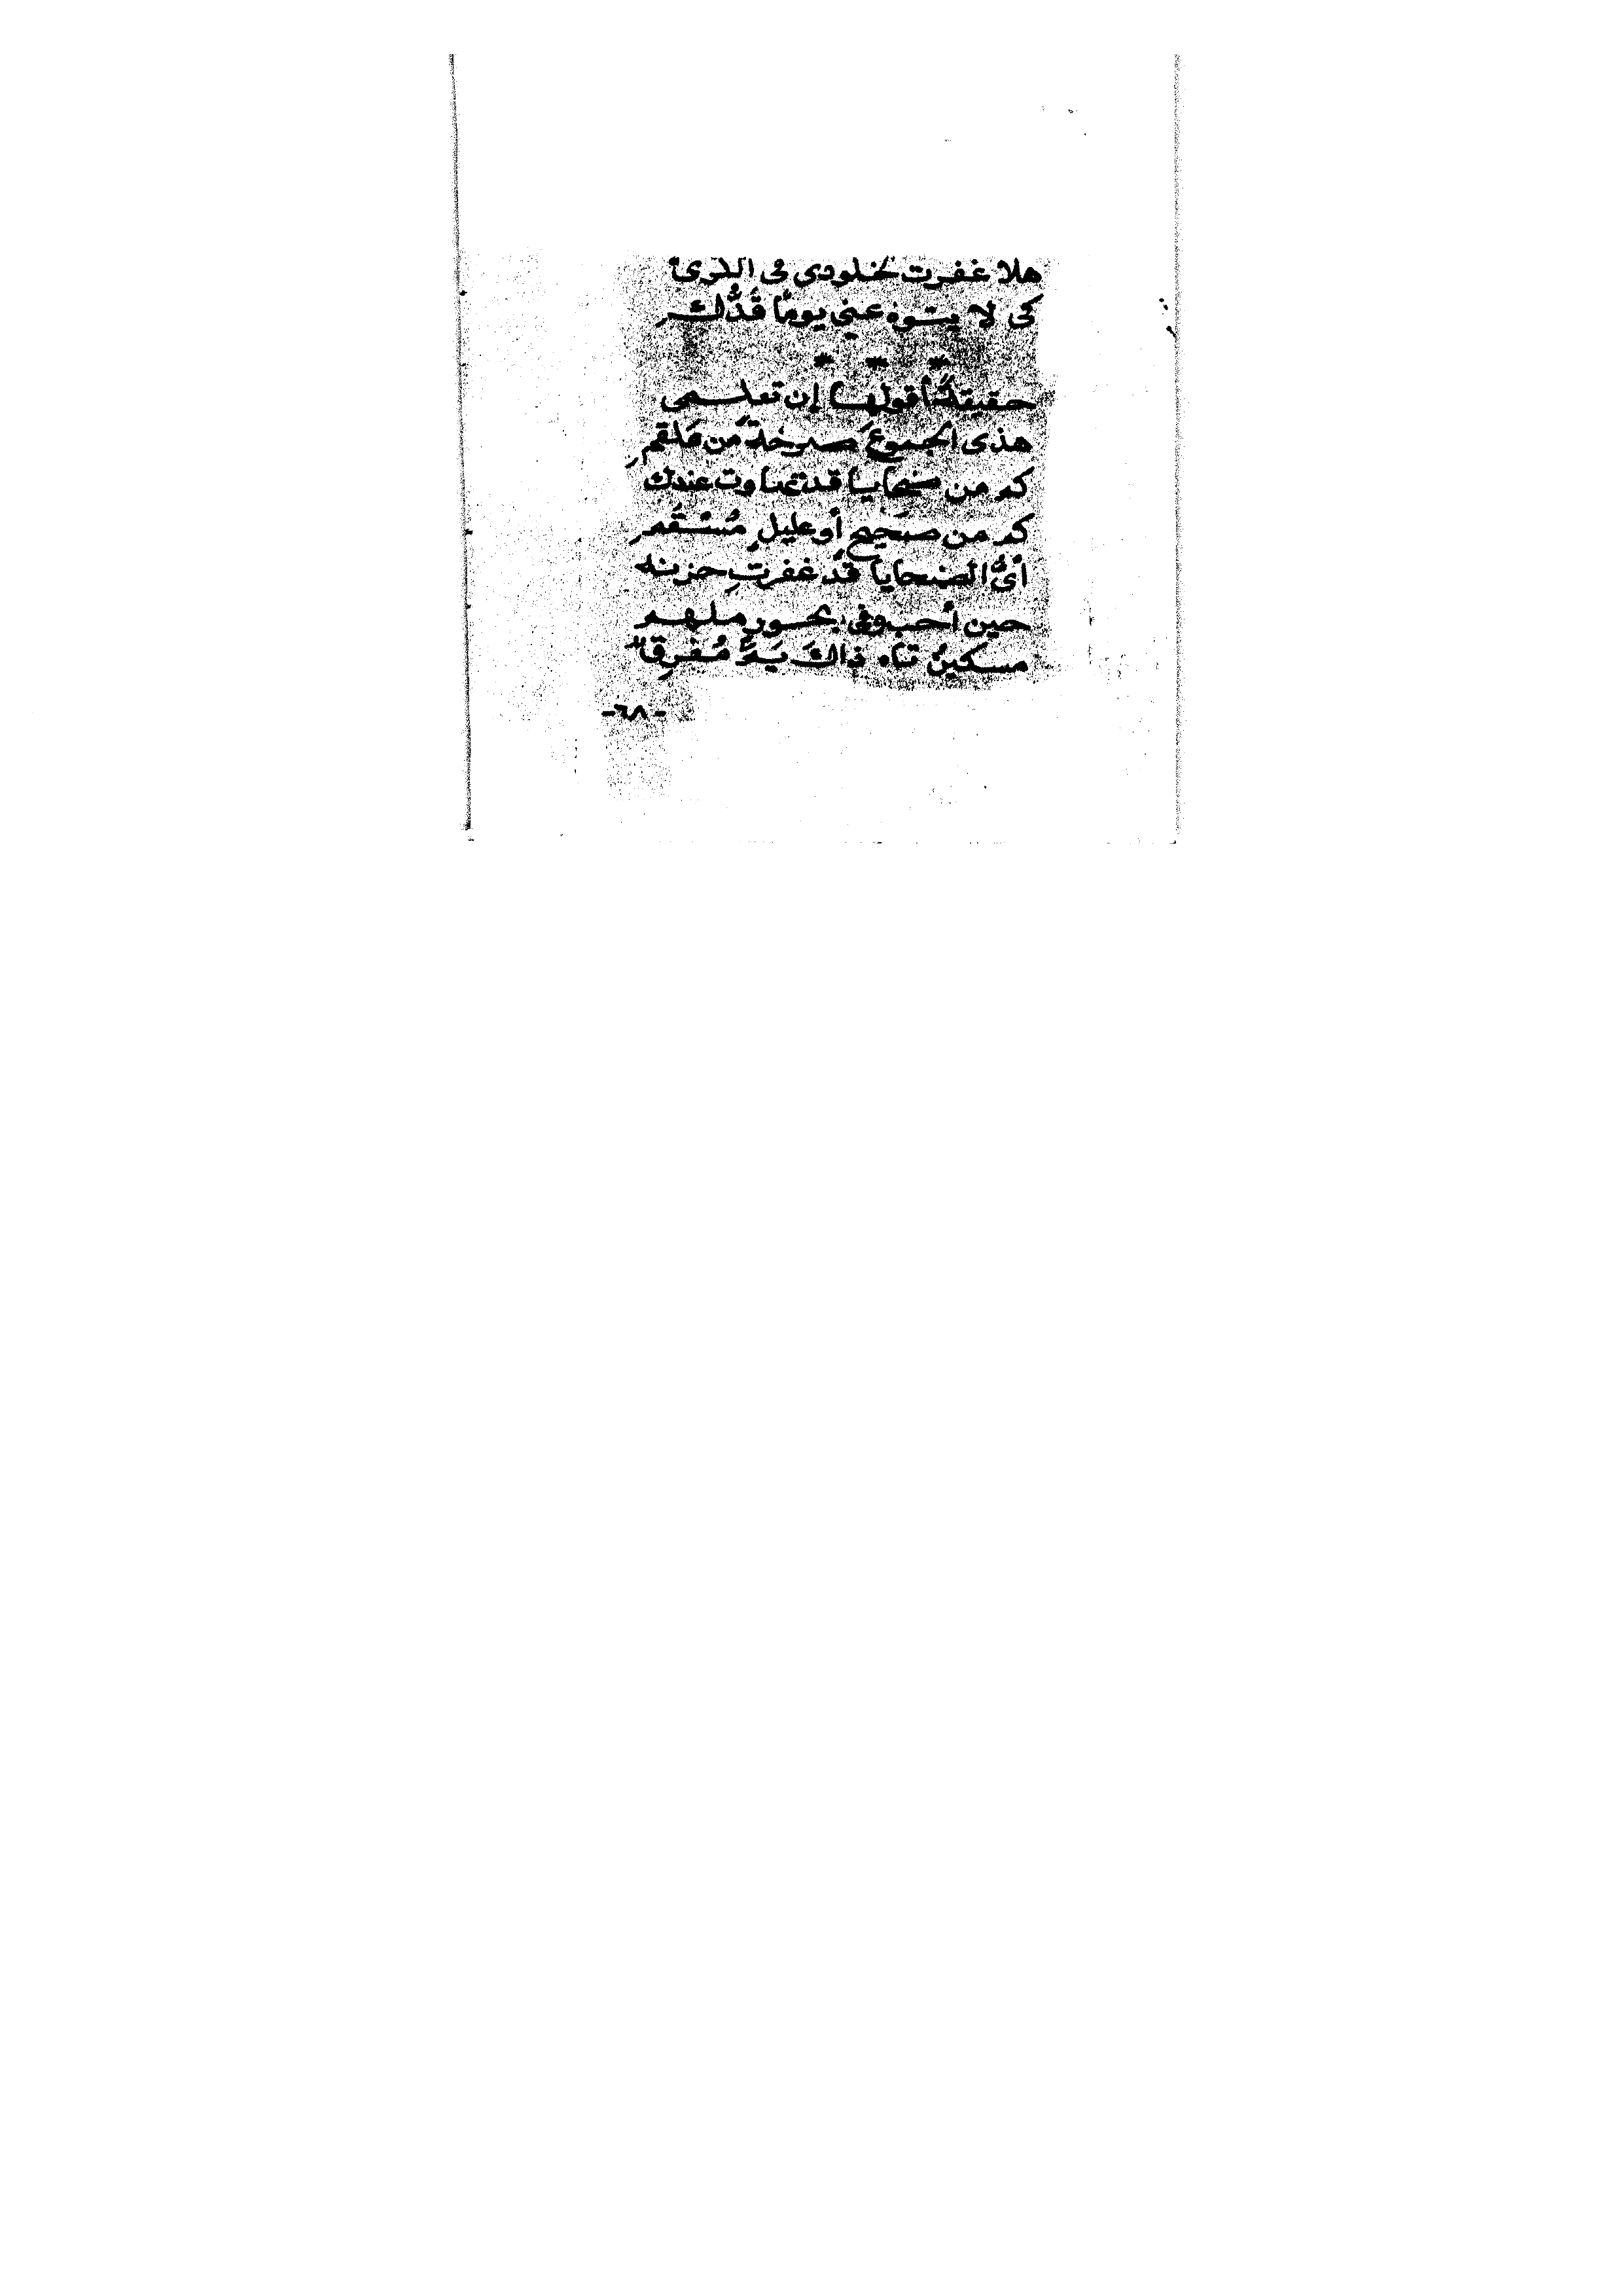 هلا غفرت لخلودى فى الثرى
كى لا يتوه عنى يومًا قَدُّك
* * *
حقيقةً أقولها إن تعلمى
هذى الجموعَ صرخةٌ من عَلقمِ
كم من ضحايا قد تهاوت عندك
كم من صحيحٍ أو عليلٍ مُسْقَمِ
أىُّ الضحايا قد غفرتِ حزنه
حين أحب وفى بحورٍ ملهم
مسكينٌ تاه ذاكَ يَمٌّ مُغرِقٌ
-٦٨-